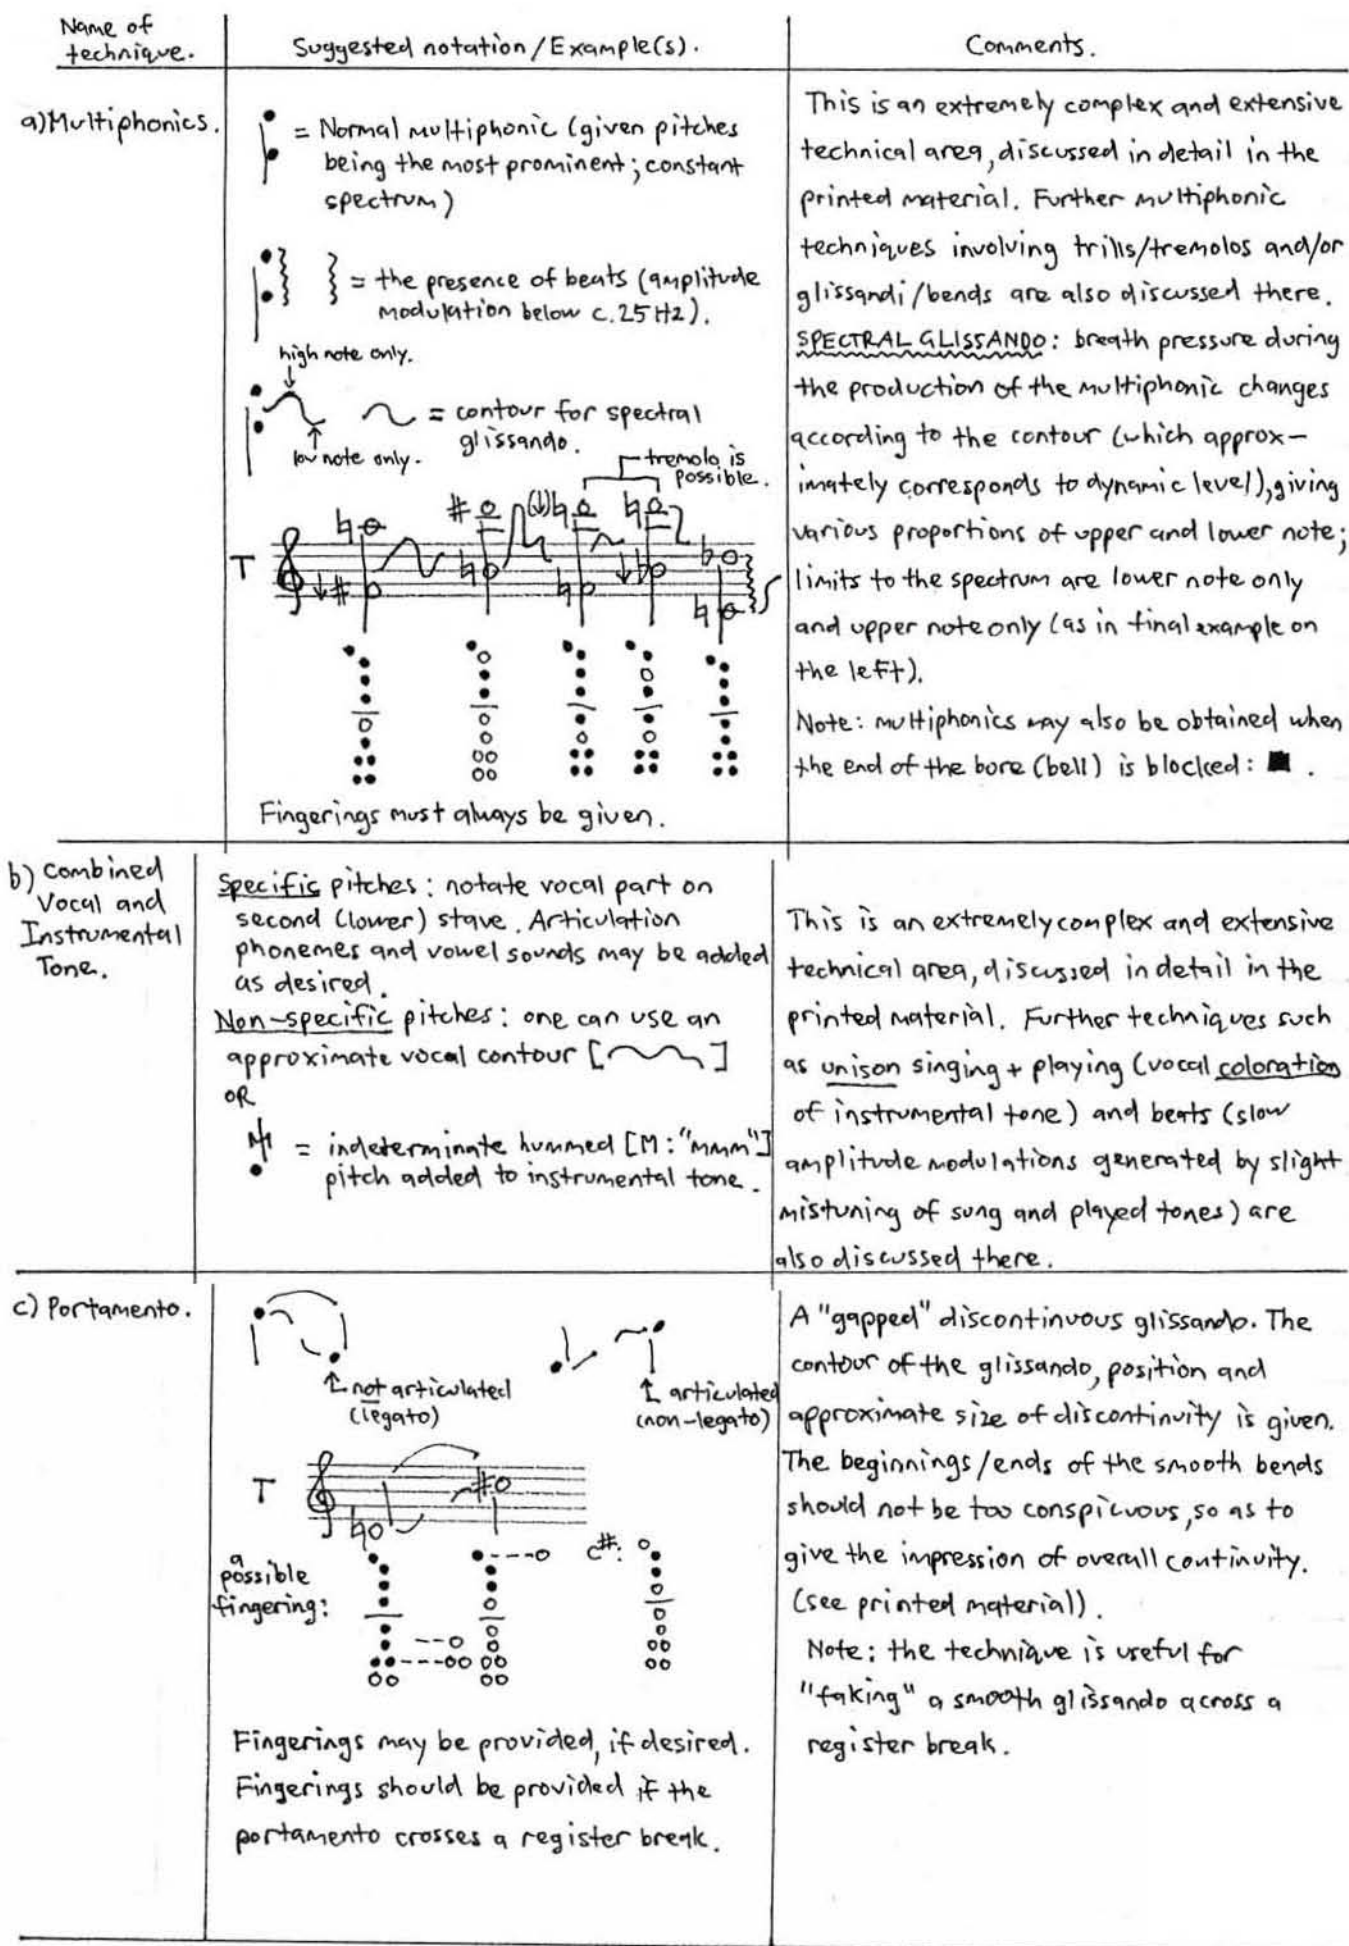 Name of
technique.
Suggested notation/Example(s).
Comments.
a) Multiphonics.
= Normal multiphonic (given pitches
being the most prominent; constant
spectrum)
= the presence of beats (amplitude
modulation below c.25Hz).
high note only.
= contour for spectral
glissando.
low note only.
tremolo is
possible.
T
Fingerings must always be given.
This is an extremely complex and extensive
technical area, discussed in detail in the
printed material. Further multiphonic
techniques involving trills/tremolos and/or
glissandi/bends are also discussed there.
SPECTRAL GLISSANDO: breath pressure during
the production of the multiphonic changes
according to the contour (which approx-
imately corresponds to dynamic level), giving
various proportions of upper and lower note;
limits to the spectrum are lower note only
and upper note only (as in final example on
the left).
Note: multiphonics may also be obtained when
the end of the bore (bell) is blocked: ■ .
b) Combined
Vocal and
Instrumental
Tone.
Specific pitches: notate vocal part on
second (lower) stave. Articulation
phonemes and vowel sounds may be added
as desired.
Non-specific pitches: one can use an
approximate vocal contour [ ]
OR
= indeterminate hummed [M: "mmm"]
pitch added to instrumental tone.
This is an extremely complex and extensive
technical area, discussed in detail in the
printed material. Further techniques such
as unison singing + playing (vocal coloration
of instrumental tone) and beats (slow
amplitude modulations generated by slight
mistuning of sung and played tones) are
also discussed there.
c) Portamento.
not articulated
(legato)
articulated
(non-legato)
T
a
possible
fingering:
c#:
Fingerings may be provided, if desired.
Fingerings should be provided if the
portamento crosses a register break.
A "gapped" discontinuous glissando. The
contour of the glissando, position and
approximate size of discontinuity is given.
The beginnings/ends of the smooth bends
should not be too conspicuous, so as to
give the impression of overall continuity.
(see printed material).
Note: the technique is useful for
"faking" a smooth glissando across a
register break.